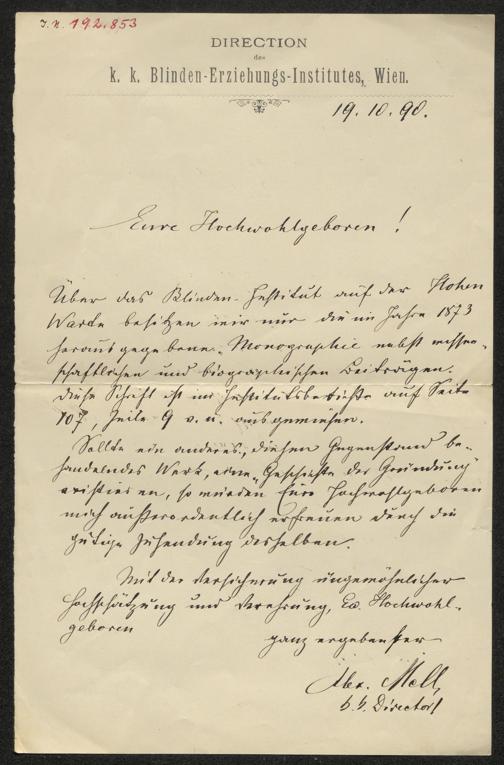 I.N. 192.853
DIRECTION
des
k. k. Blinden-Erziehungs-Institutes, Wien.
19. 10. 90.
Eure Hochwohlgeboren!
Über das Blinden-Institut auf der Hohen
Warte besitzen wir nur die im Jahre 1873
herausgegebene „Monographie nebst wissen-
schaftlichen und biographischen Beiträgen.
Diese Schrift ist im Institutsberichte auf Seite
107, Zeile 9 v. u. ausgewiesen.
Sollte ein anderes, diesen Gegenstand be-
handelndes Werk, eine „Geschichte der Gründung"
existieren, so würden Eure Hochwohlgeboren
mich außerordentlich erfreuen durch die
gütige Zusendung desselben.
Mit der Versicherung ungewöhnlicher
Hochschätzung und Verehrung, Eu. Hochwohl-
geboren
ganz ergebenster
Alex. Mell,
k. k. Director